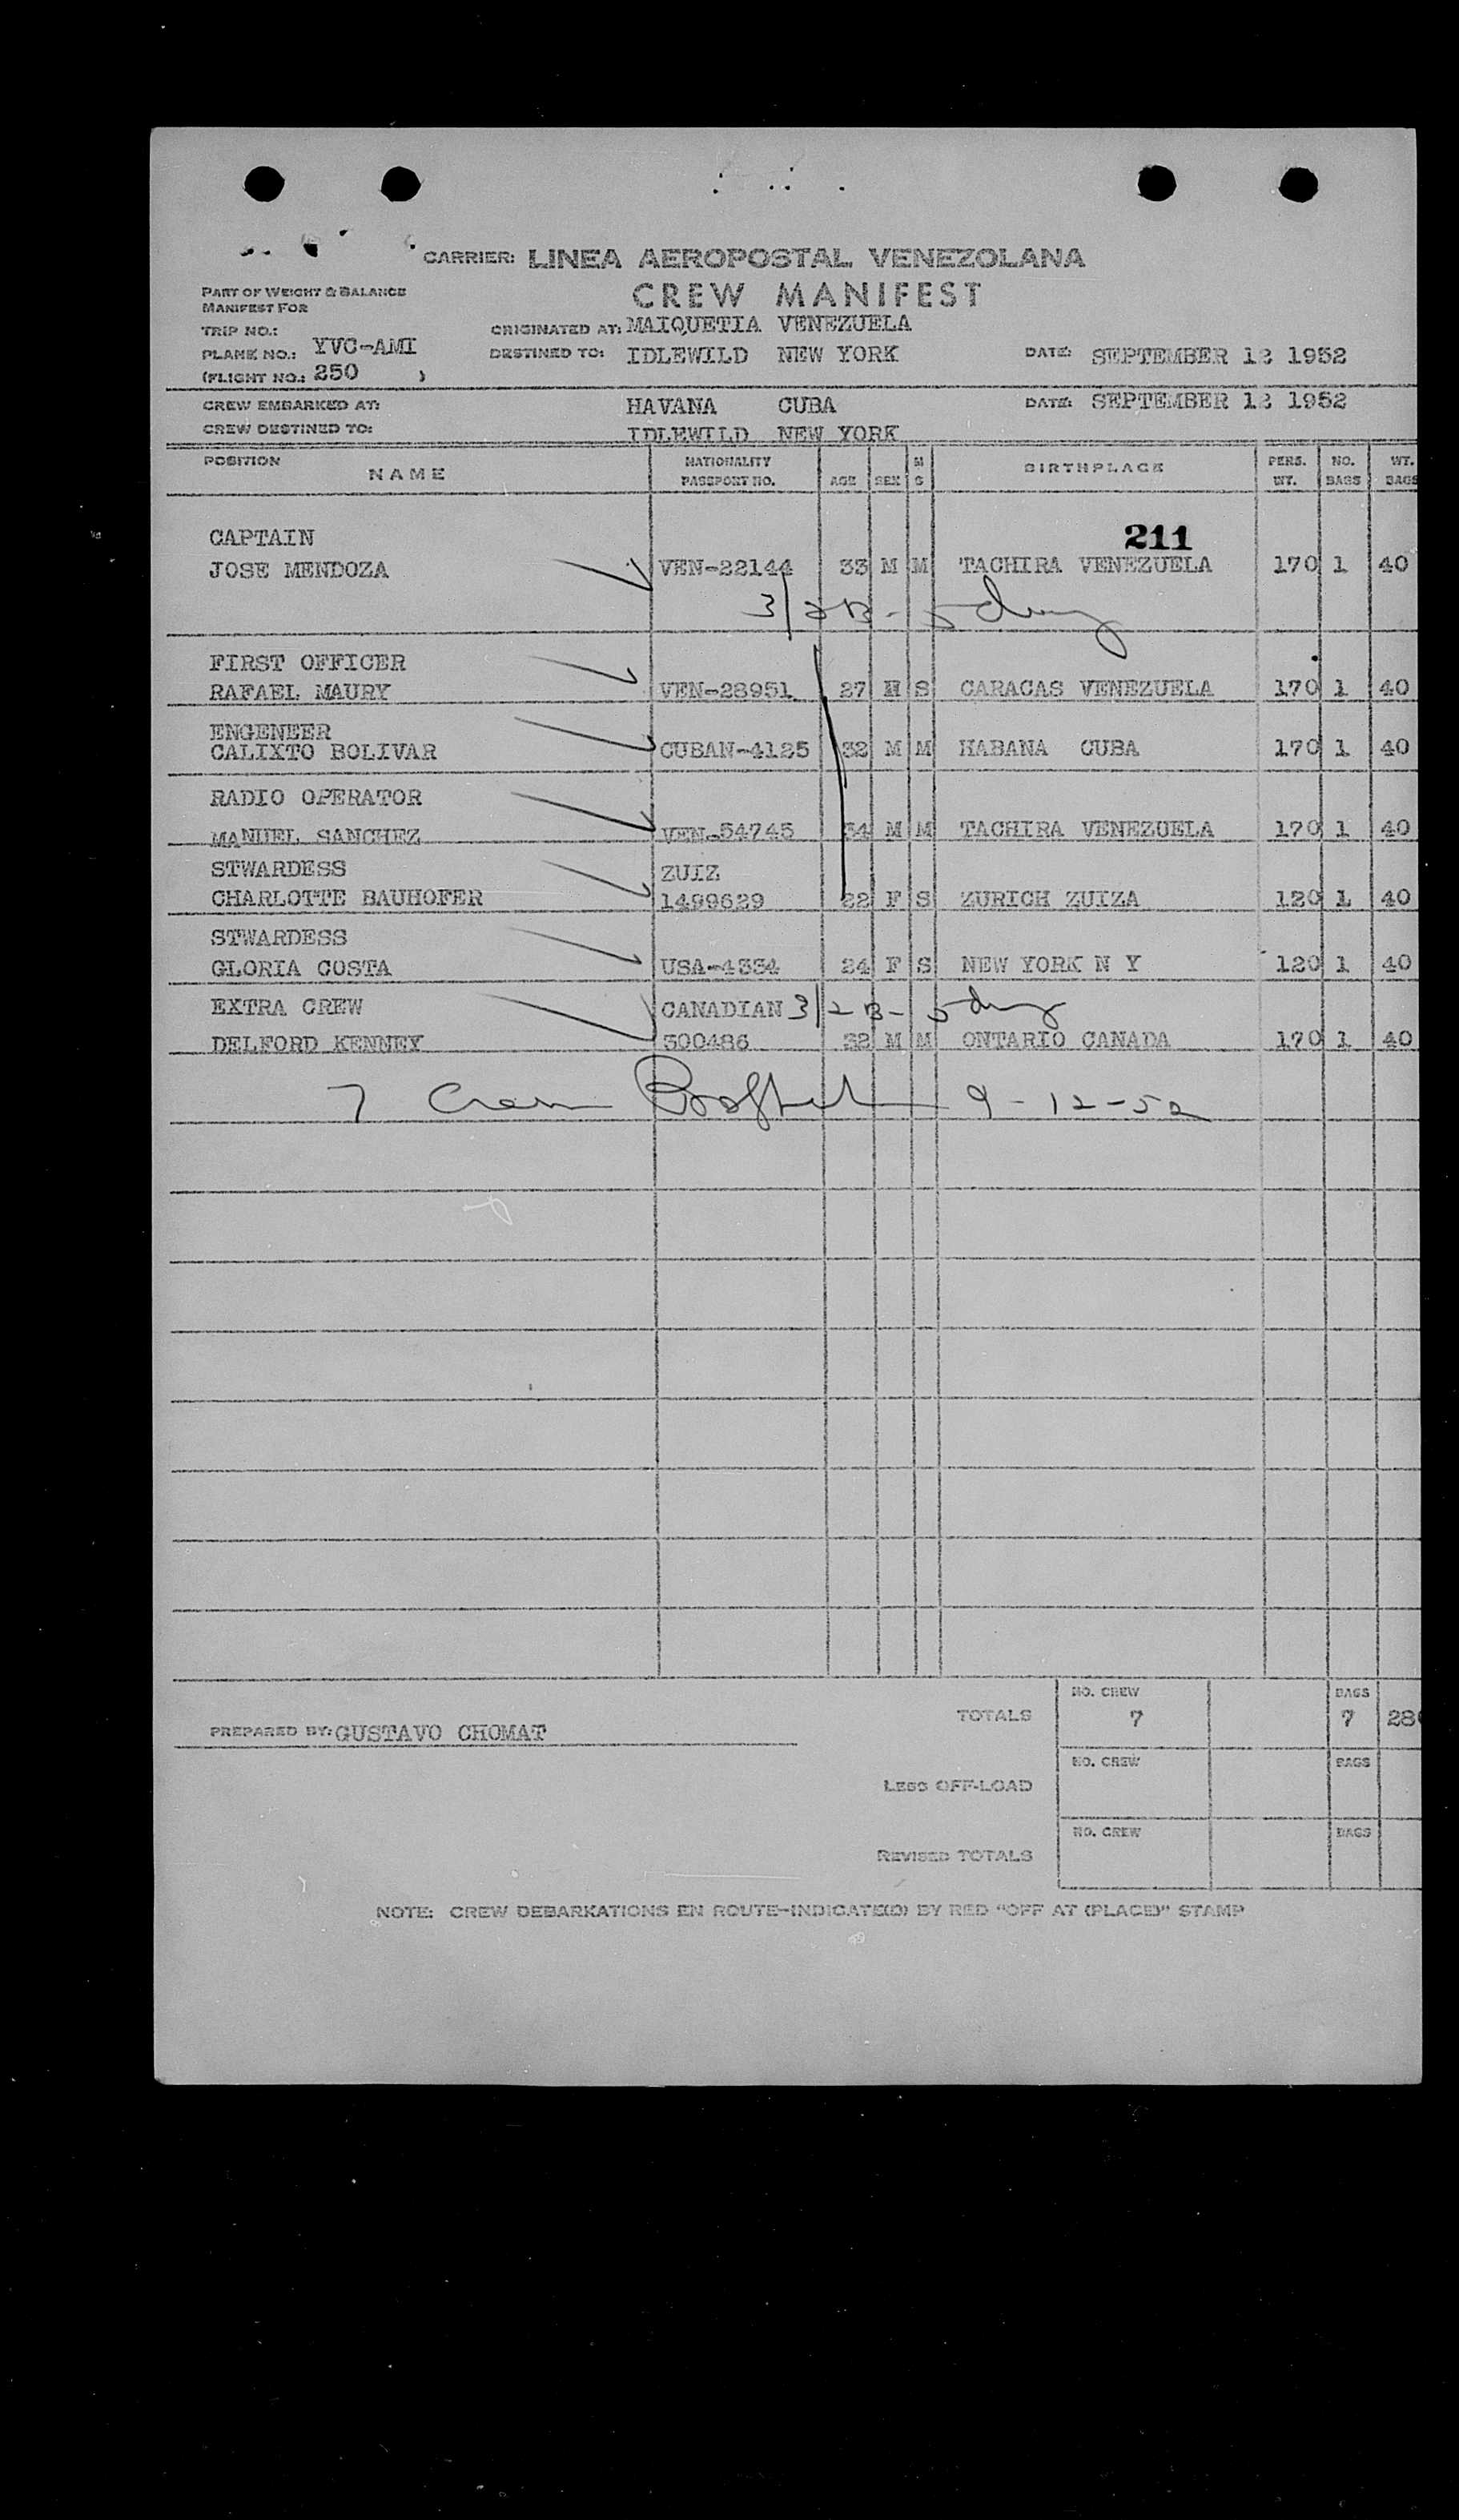 CARRIER: LINEA AEROPOSTAL VENEZOLANA
PART OF WEIGHT & BALANCE
MANIFEST FOR
CREW MANIFEST
TRIP NO.:
ORIGINATED AT: MAIQUETIA VENEZUELA
PLANE NO.: YVC-AMI
DESTINED TO: IDLEWILD NEW YORK DATE: SEPTEMBER 12 1952
(FLIGHT NO.: 250 )
CREW EMBARKED AT: HAVANA CUBA DATE: SEPTEMBER 12 1952
CREW DESTINED TO: IDLEWILD NEW YORK
POSITION NAME NATIONALITY PASSPORT NO. AGE SEX M S BIRTHPLACE PERS. WT. NO. BAGS WT. BAGS
211
CAPTAIN
JOSE MENDOZA VEN-22144 33 M M TACHIRA VENEZUELA 170 1 40
FIRST OFFICER
RAFAEL MAURY VEN-28951 27 M S CARACAS VENEZUELA 170 1 40
ENGENEER
CALIXTO BOLIVAR CUBAN-4125 32 M M HABANA CUBA 170 1 40
RADIO OPERATOR
MANUEL SANCHEZ VEN-54745 34 M M TACHIRA VENEZUELA 170 1 40
STWARDESS ZUIZ
CHARLOTTE BAUHOFER 1499629 22 F S ZURICH ZUIZA 120 1 40
STWARDESS
GLORIA COSTA USA-4334 24 F S NEW YORK N Y 120 1 40
EXTRA CREW CANADIAN
DELFORD KENNEY 300486 32 M M ONTARIO CANADA 170 1 40
7 Crew 9-12-52
PREPARED BY: GUSTAVO CHOMAT
TOTALS NO. CREW 7 BAGS 7 28
LESS OFF-LOAD NO. CREW BAGS
REVISED TOTALS NO. CREW BAGS
NOTE: CREW DEBARKATIONS EN ROUTE-INDICATE(D) BY RED "OFF AT (PLACE)" STAMP